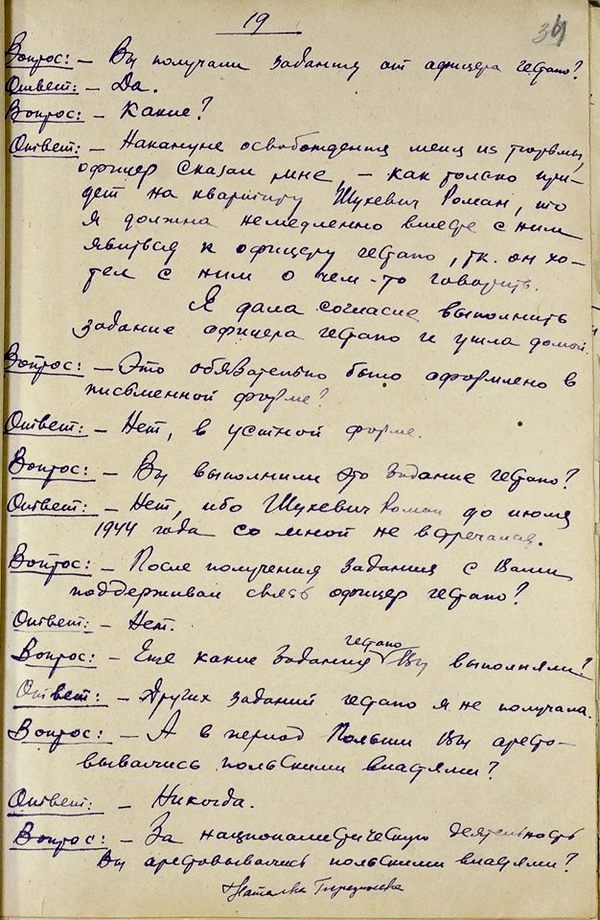 19
34
Вопрос: – Вы получали задания от офицера гестапо?
Ответ: – Да.
Вопрос: – Какие?
Ответ: – Накануне освобождения меня из тюрьмы,
офицер сказал мне, – как только при-
дет на квартиру Шухевич Роман, то
я должна немедленно вместе с ним
явиться к офицеру гестапо, т.к. он хо-
тел с ним о чем-то говорить.
Я дала согласие выполнить
задание офицера гестапо и ушла домой.
Вопрос: – Это обязательно было оформлено в
письменной форме?
Ответ: – Нет, в устной форме.
Вопрос: – Вы выполнили это задание гестапо?
Ответ: – Нет, ибо Шухевич Роман до июля
1944 года со мной не встречался.
Вопрос: – После получения задания с Вами
поддерживал связь офицер гестапо?
Ответ: – Нет.
Вопрос: – Еще какие задания гестапо Вы выполняли?
Ответ: – Других заданий гестапо я не получала.
Вопрос: – А в период Польши Вы аресто-
вывались польскими властями?
Ответ: – Никогда.
Вопрос: – За националистическую деятельность
Вы арестовывались польскими властями?